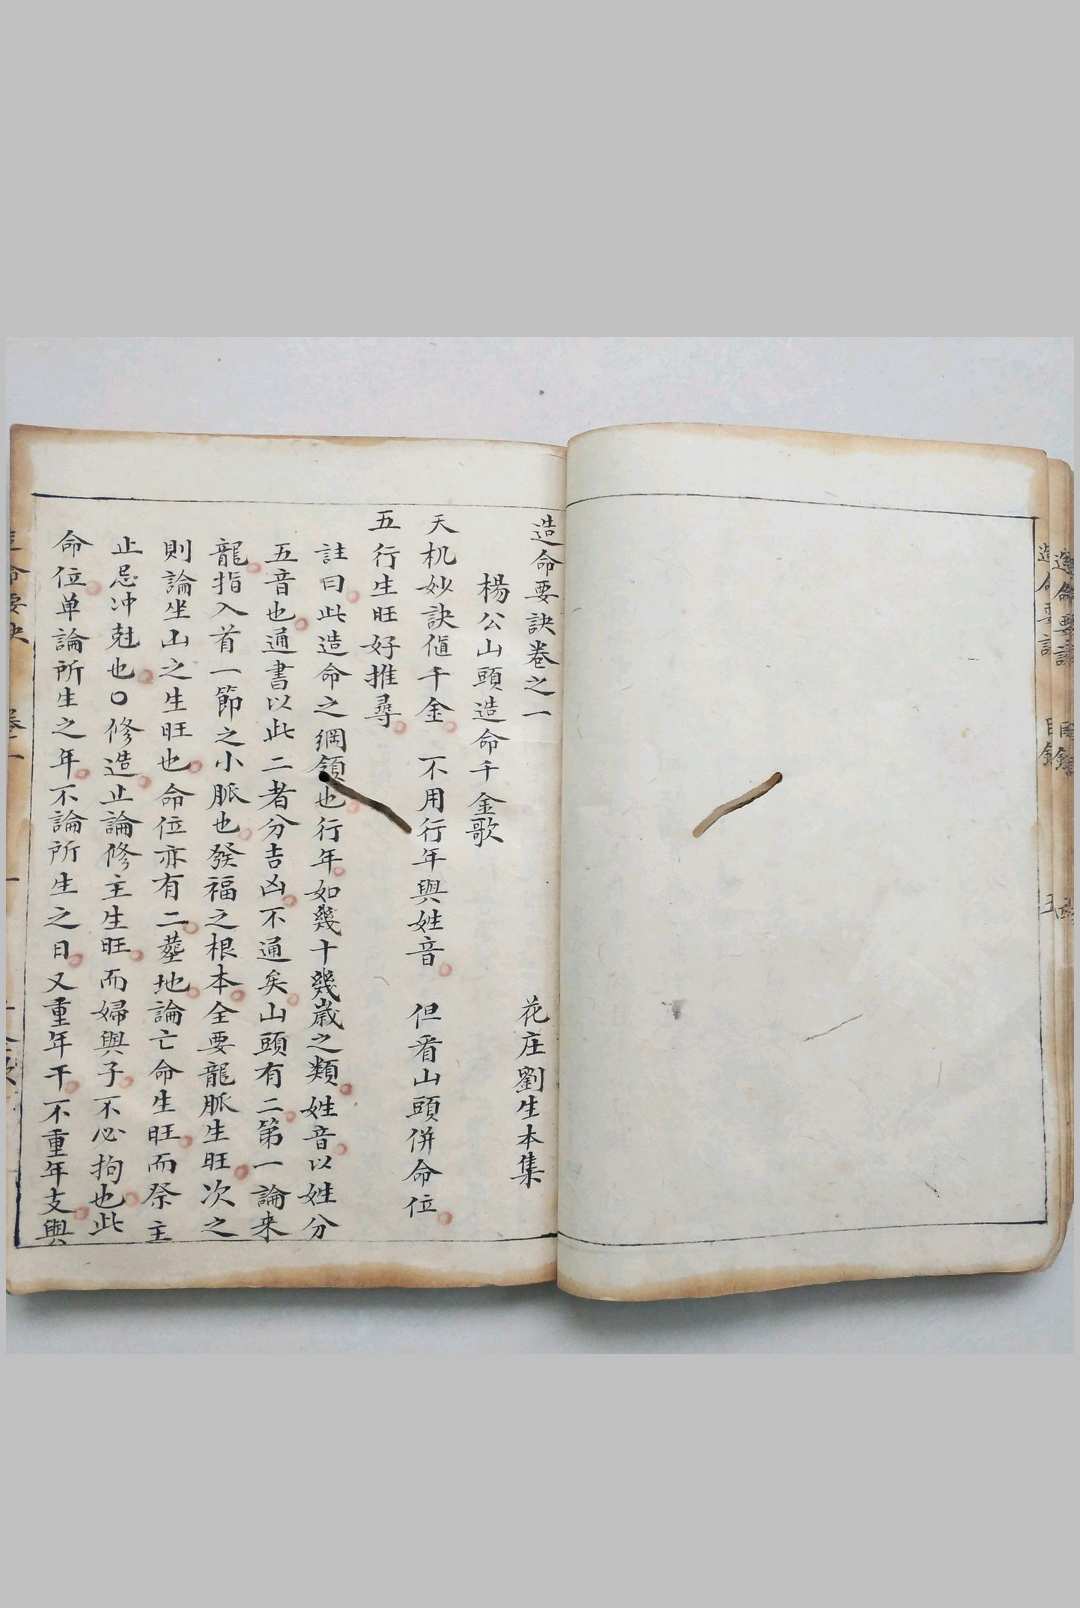 造命要訣卷之一
花庄劉生本集
楊公山頭造命千金歌
天机妙訣値千金 不用行年與姓音 但看山頭併命位
五行生旺好推尋
註曰此造命之綱領也行年如幾十幾歲之類姓音以姓分
五音也通書以此二者分吉凶不通矣山頭有二第一論来
龍指入首一節之小脈也發福之根本全要龍脈生旺次之
則論坐山之生旺也命位亦有二塟地論亡命生旺而祭主
止忌冲尅也〇修造止論修主生旺而婦與子不必拘也此
命位单論所生之年不論所生之日又重年干不重年支與
造命要訣 卷一 一
造命要訣 目錄 五
造命要訣 目錄